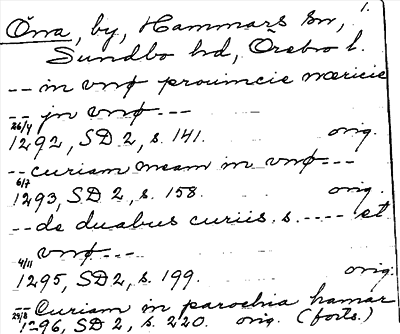 1.
Önna, by, Hammars sn,
Sundbo hd, Örebro l.
-- in vnø prouincie nericie
-- jn vnø ---
26/4 1292, SD 2, s. 141. orig.
-- curiam meam in vnø ---
6/7 1293, SD 2, s. 158. orig.
-- de duabus curiis. s. ---- et
vnø ---
4/11 1295, SD 2, s. 199. orig.
-- Curiam in parochia hamar
1296, SD 2, s. 220. orig. (forts.)